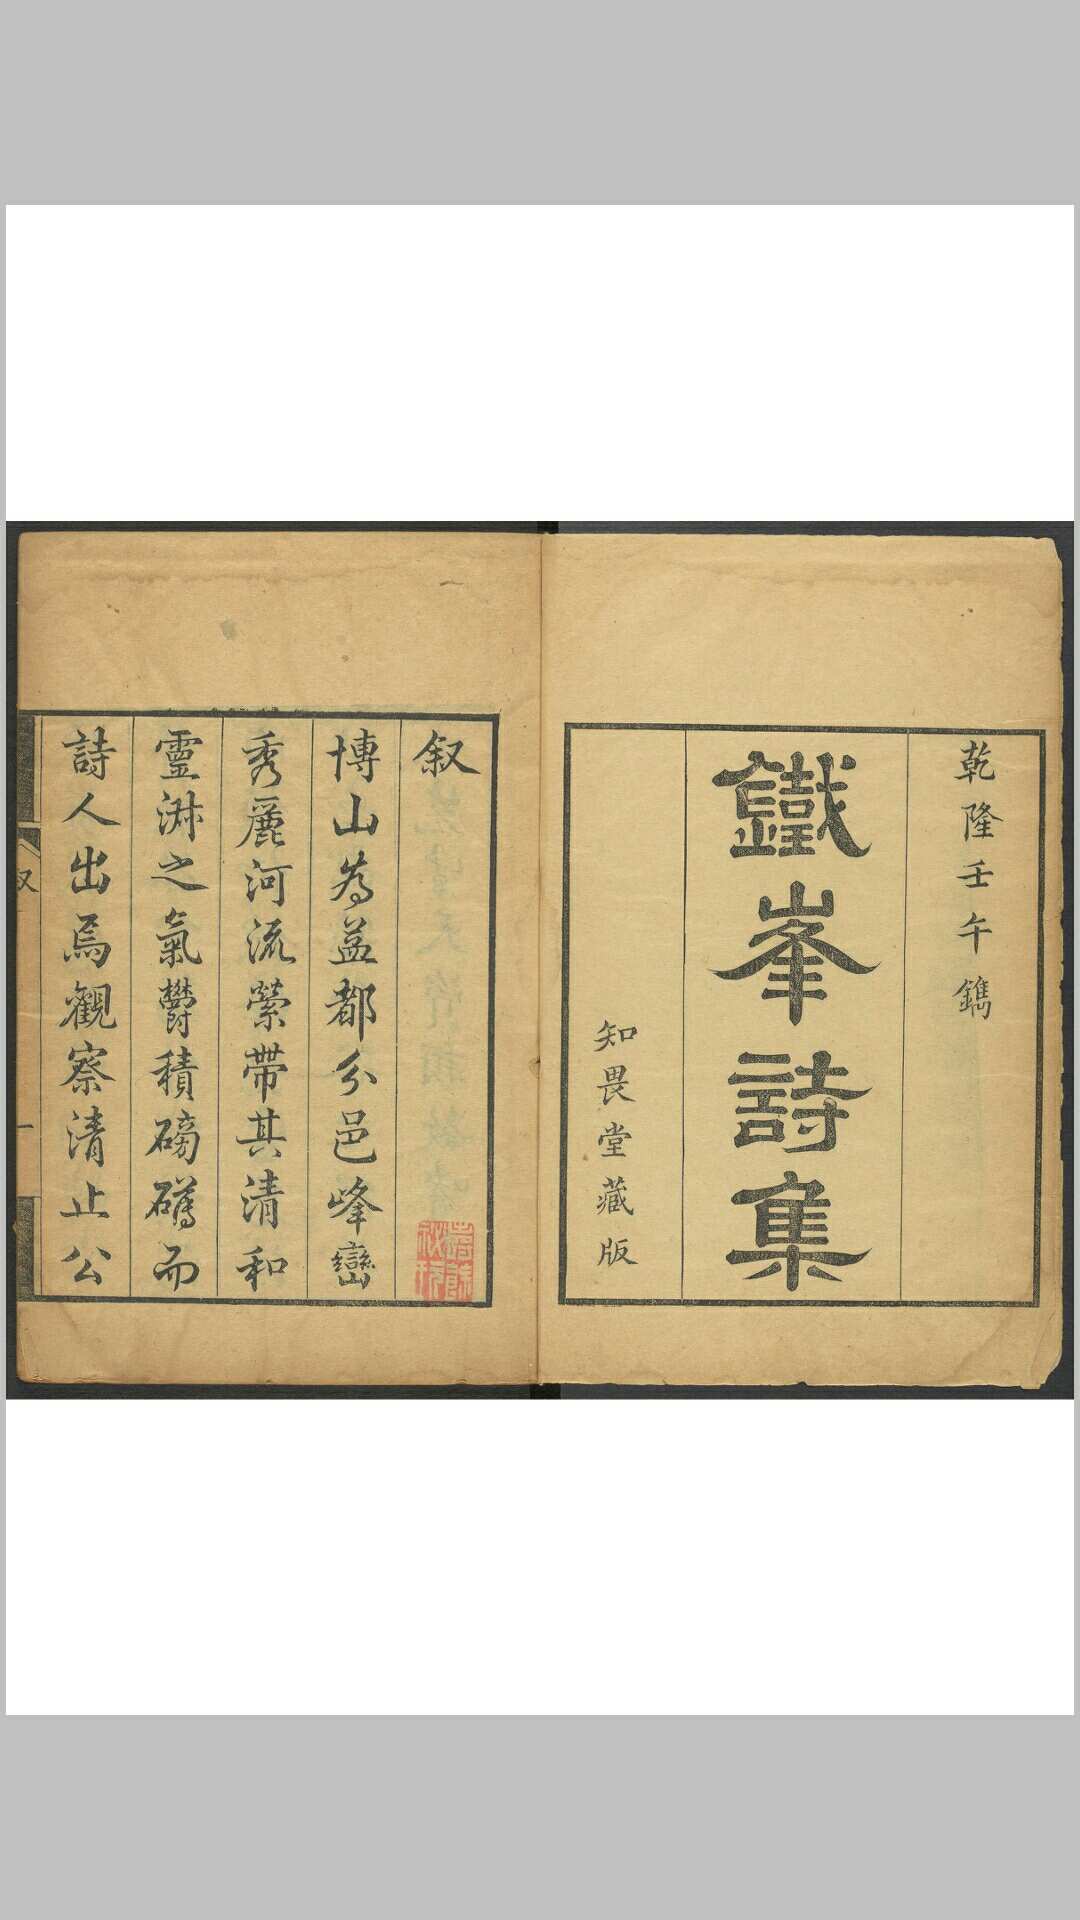 乾隆壬午鐫
鐵峯詩集
知畏堂藏版
叙
博山為益都分邑峰巒
秀麗河流縈帶其清和
靈淋之氣欝積磅礴而
詩人出焉觀察清止公
叙
一